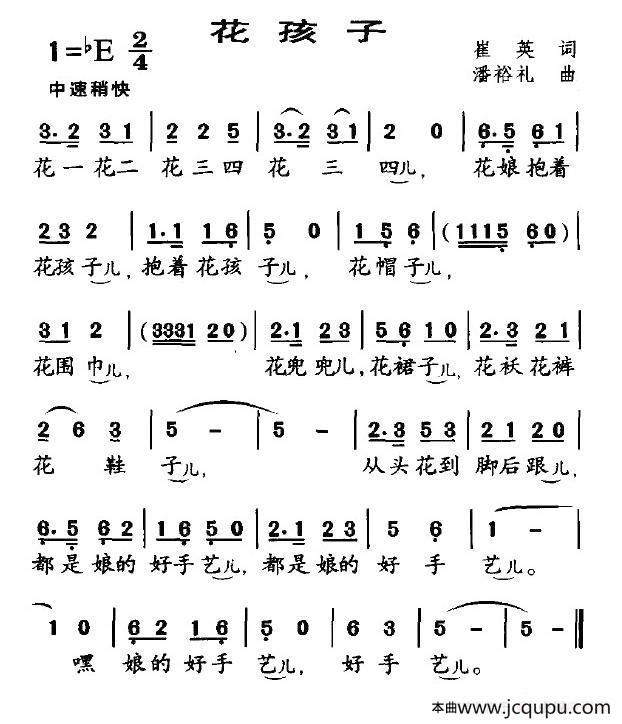 花孩子
1=♭E 2/4
崔英 词
中速稍快
潘裕礼 曲
3·2 31 | 2 2 5 | 3·2 31 | 2 0 | 6·5 61 |
花一花二 花三四 花 三 四儿, 花娘抱着
2 3 2 | 1·1 1 6 | 5 0 | 1 5 6 | (1115 60) |
花孩子儿, 抱着花孩 子儿, 花帽子儿,
3 1 2 | (3331 20) | 2·1 23 | 56 10 | 2·3 21 |
花围 巾儿, 花兜 兜儿, 花裙子儿, 花袄花裤
2 6 3 | 5 - | 5 - | 2·3 53 | 21 20 |
花 鞋 子儿, 从头花到 脚后跟儿,
6·5 62 | 16 50 | 2·1 23 | 5 6 | 1 - |
都是娘的 好手艺儿, 都是娘的 好 手 艺儿。
1 0 | 62 16 | 5 0 | 6 3 | 5 - | 5 - ‖
嘿 娘的好手 艺儿, 好手 艺儿。
本曲www.jcqupu.com